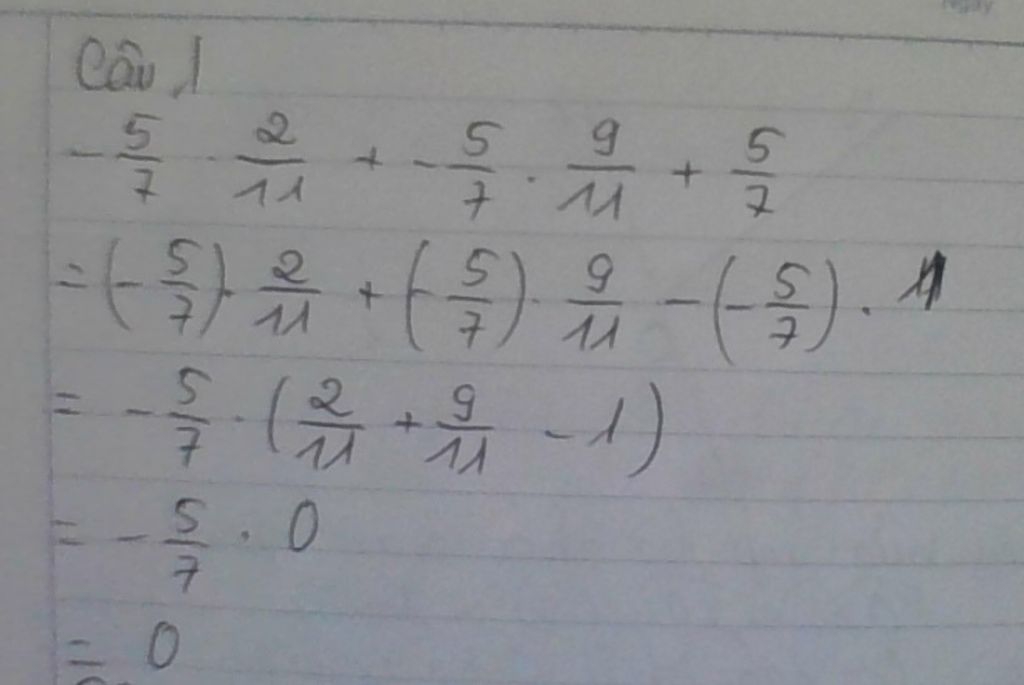 Ngày
Câu 1
- 5/7 . 2/11 + - 5/7 . 9/11 + 5/7
= (- 5/7) . 2/11 + (- 5/7) . 9/11 - (- 5/7) . 1
= - 5/7 . (2/11 + 9/11 - 1)
= - 5/7 . 0
= 0